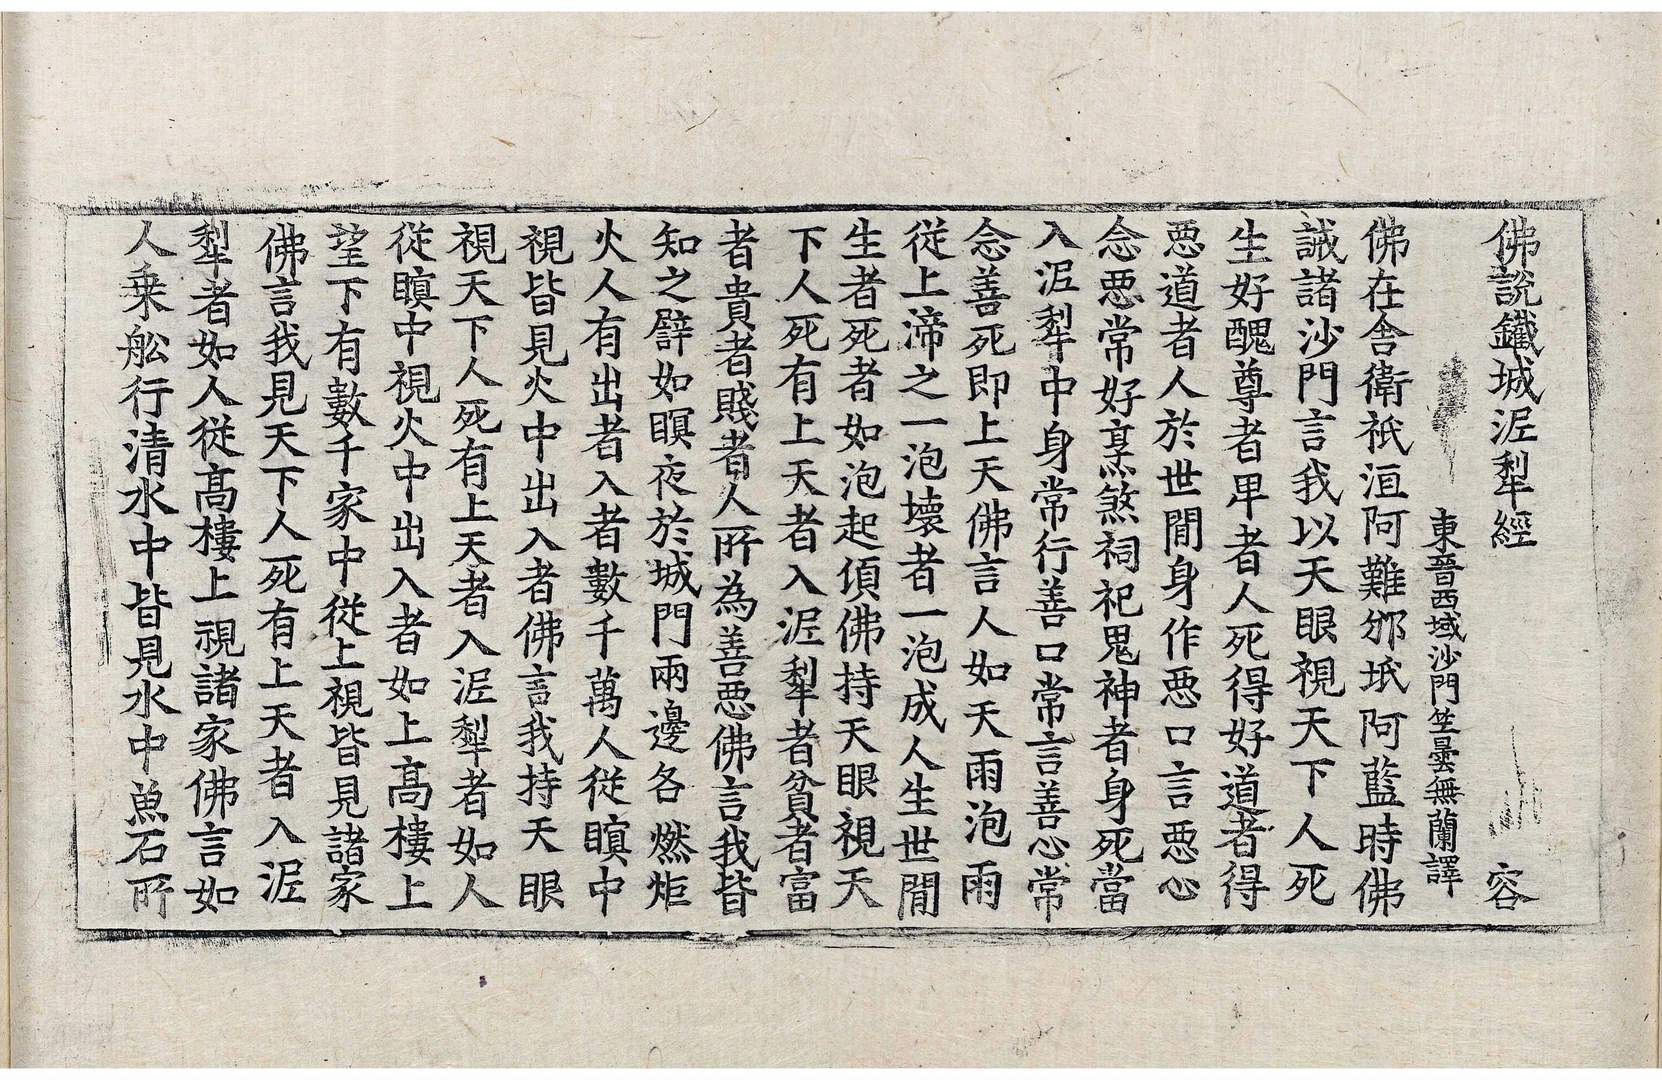 佛說鐵城泥犁經 容
東晉西域沙門竺曇無蘭譯
佛在舍衛祇洹阿難邠坻阿藍時佛
誡諸沙門言我以天眼視天下人死
生好醜尊者卑者人死得好道者得
惡道者人於世間身作惡口言惡心
念惡常好烹煞祠祀鬼神者身死當
入泥犁中身常行善口常言善心常
念善死即上天佛言人如天雨泡雨
從上渧之一泡壞者一泡成人生世間
生者死者如泡起頃佛持天眼視天
下人死有上天者入泥犁者貧者富
者貴者賤者人所為善惡佛言我皆
知之譬如瞑夜於城門兩邊各燃炬
火人有出者入者數千萬人從瞑中
視皆見火中出入者佛言我持天眼
視天下人死有上天者入泥犁者如人
從瞑中視火中出入者如上高樓上
望下有數千家中從上視皆見諸家
佛言我見天下人死有上天者入泥
犁者如人從高樓上視諸家佛言如
人乘船行清水中皆見水中魚石所